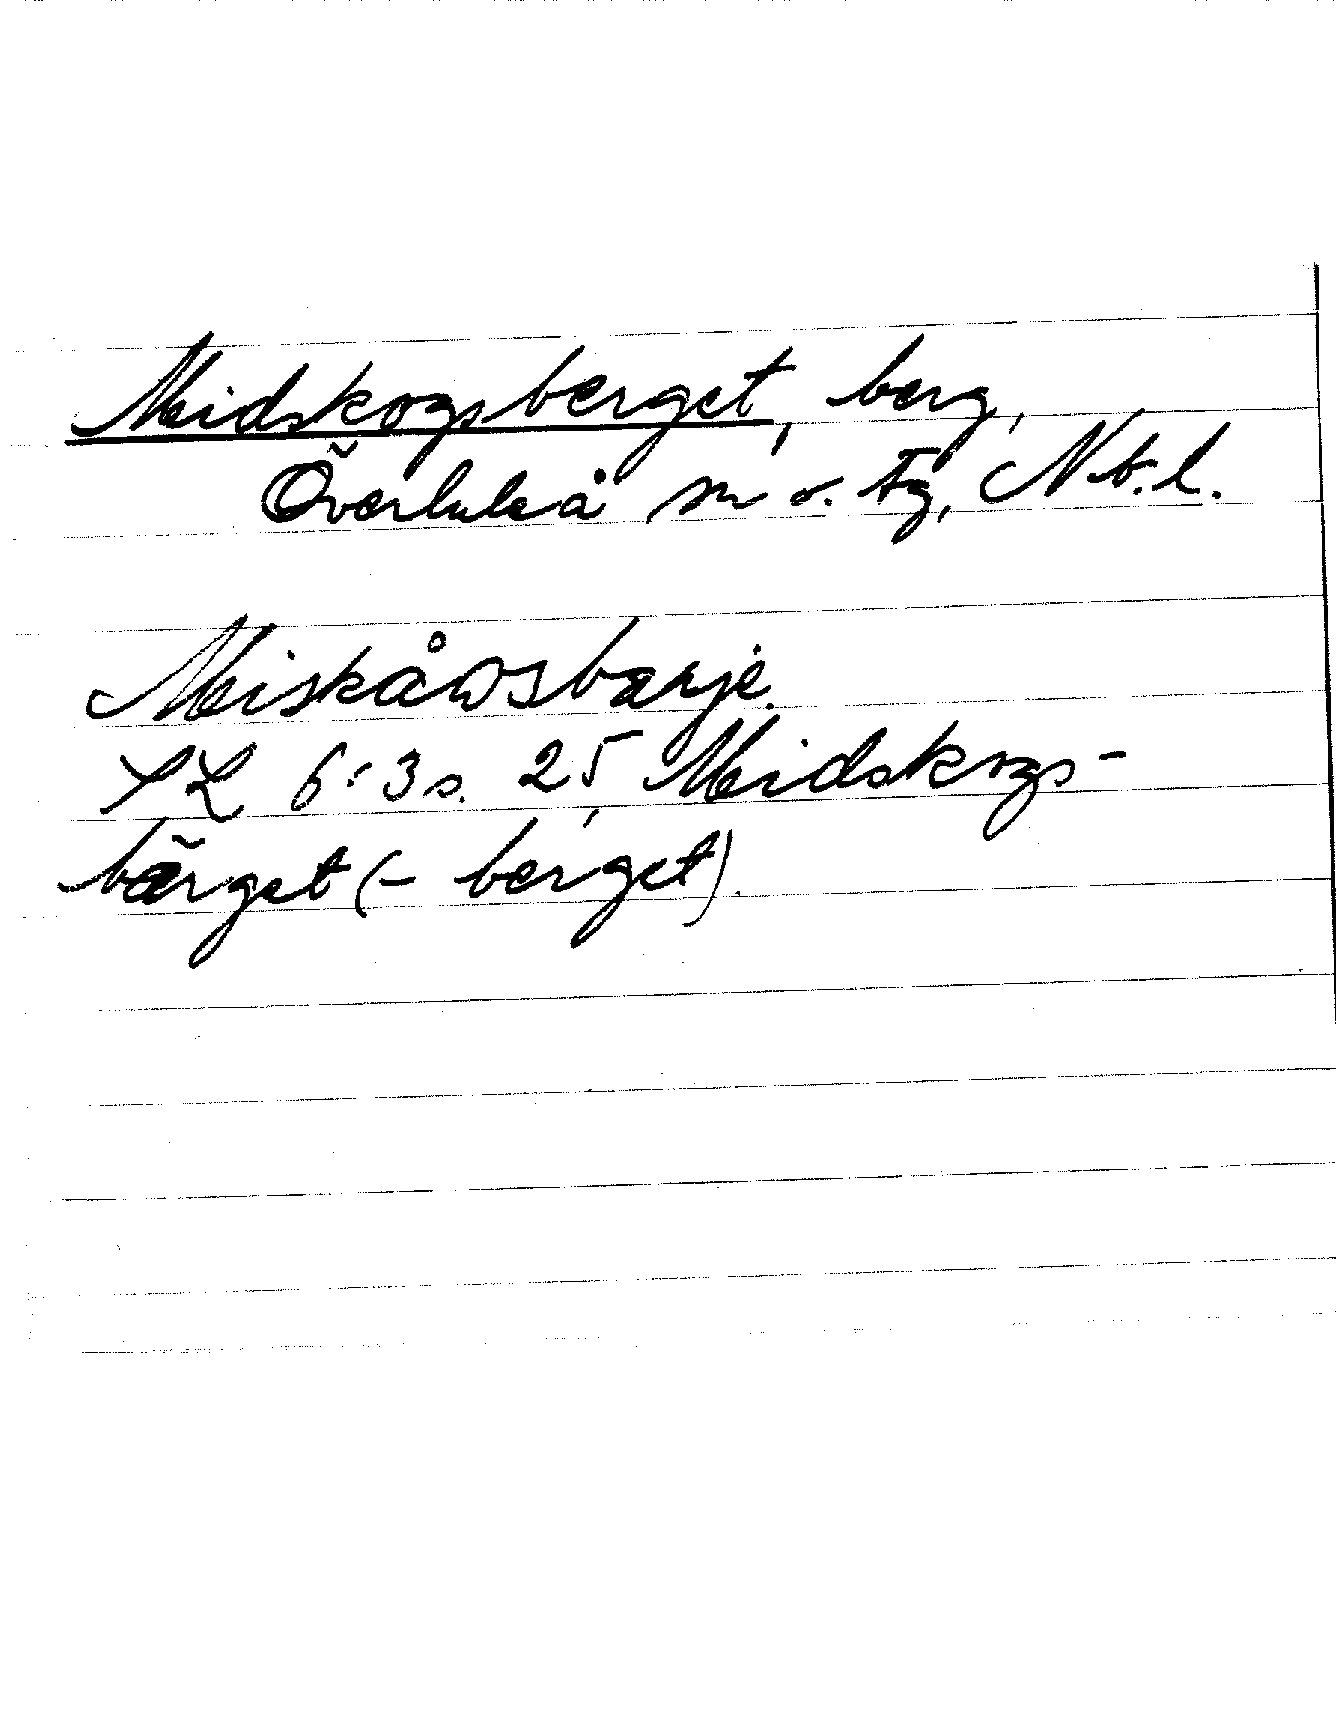 Midskogsberget, berg,
Överluleå sn o. tg, Nb. l.
Miskåωsbærje.
SL 6:3 s. 25, Midskogs-
bärget (- berget).